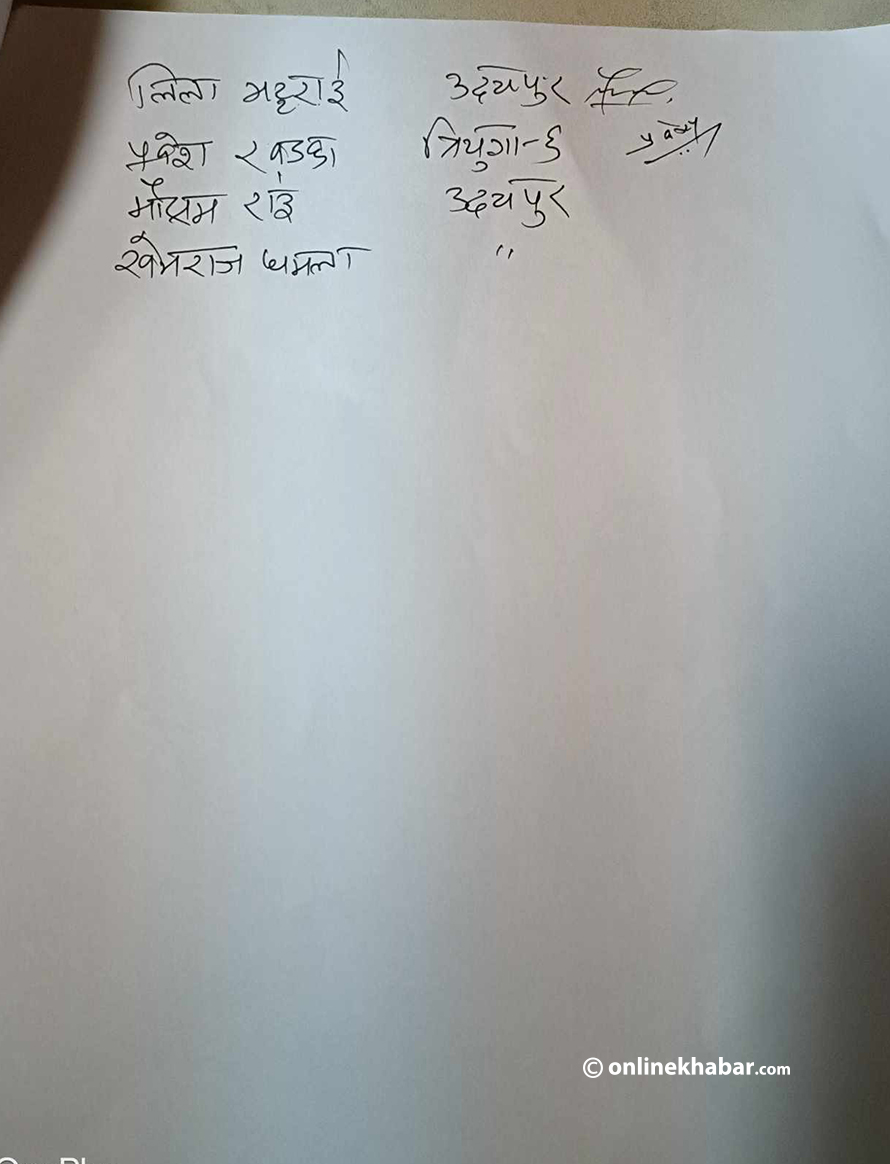 लिला भट्टराई उदयपुर
प्रवेश खड्का त्रियुगा-६
मौसम राई उदयपुर
खेमराज थमला "
© onlinekhabar.com